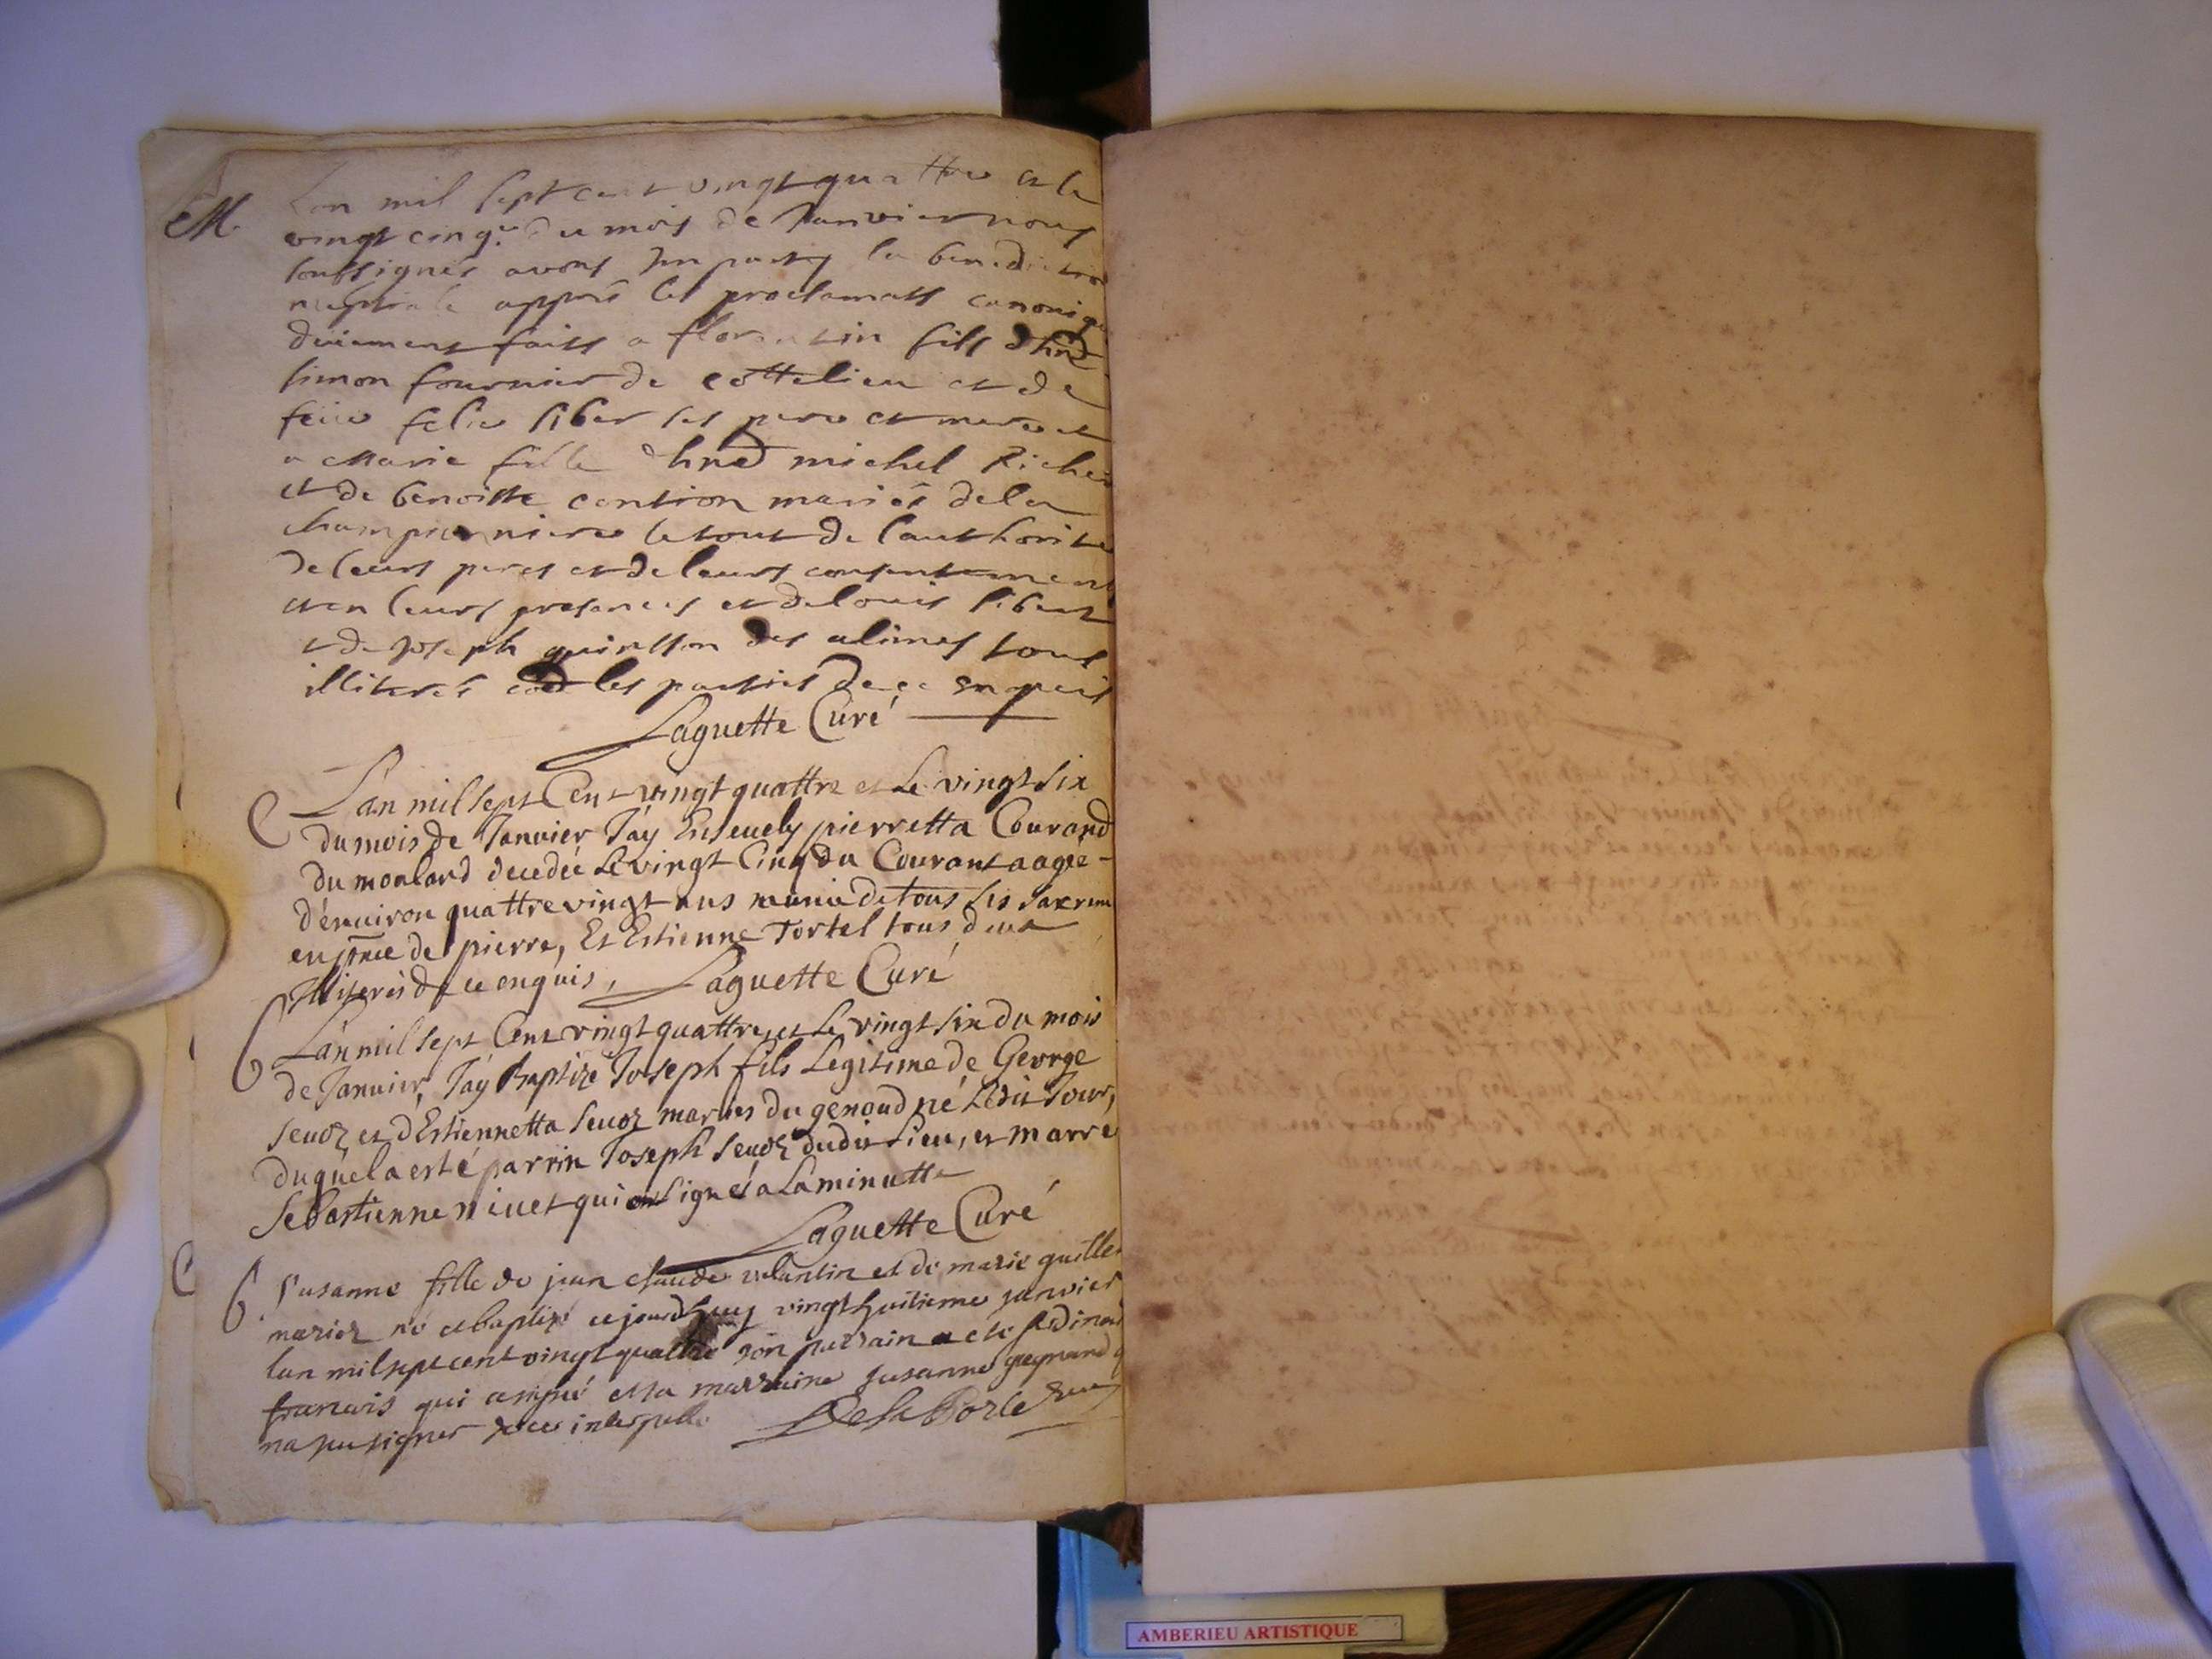 M. Lan mil sept cent vingt quattre et le
vingt cinq.e du mois de Janvier nous
soussignés avons Imparty la benediction
nuptiale apprés les proclamats canoniq
deüement faits a florentin fils dhnē
simon fournier de cottelieu et de
feüe feli liber ses pere et mere et
a Marie fille dhnē michel Richer
et de benoiste mariés de la
le tout de lauthorité
de leurs peres et de leurs consentement
et en leurs presences et de louis libert
et de Joseph des alimes tous
illiterés les parties de ce enquis
Laguette Curé
C L'an mil sept Cent vingt quattre et Le vingt Six
du mois de Janvier J'ay Enseuely pierretta Courand
du moalard decedée Le vingt Cinq du Courant aagée
d'énuiron quattre vingt ans munie de tous les Sacrem
en pñce de pierre, Et Estienne Tortel tous deux
Illiterés de ce enquis, Laguette Curé
B L'an mil sept Cent vingt quattre, et Le vingt Six du mois
de Januier, J'ay Baptizé Joseph fils Legitime de George
Seuoz et d'Estiennetta Seuoz mariés du genoud né Ledit Jour,
duquel a esté parrin Joseph Seuoz dudit Lieu, et marre
Sebastienne niuet qui ont Signés a La minutte
Laguette Curé
C
B Susanne fille de jean claude valantin et de marie guille
mariez né et baptizé ce jourdhuy vingt huitieme janvier
lan mil sept cent vingt quattre son parrain a été
francois qui a signé et sa marraine susanne
na pu signer de ce interpellé De la Borle
AMBERIEU ARTISTIQUE